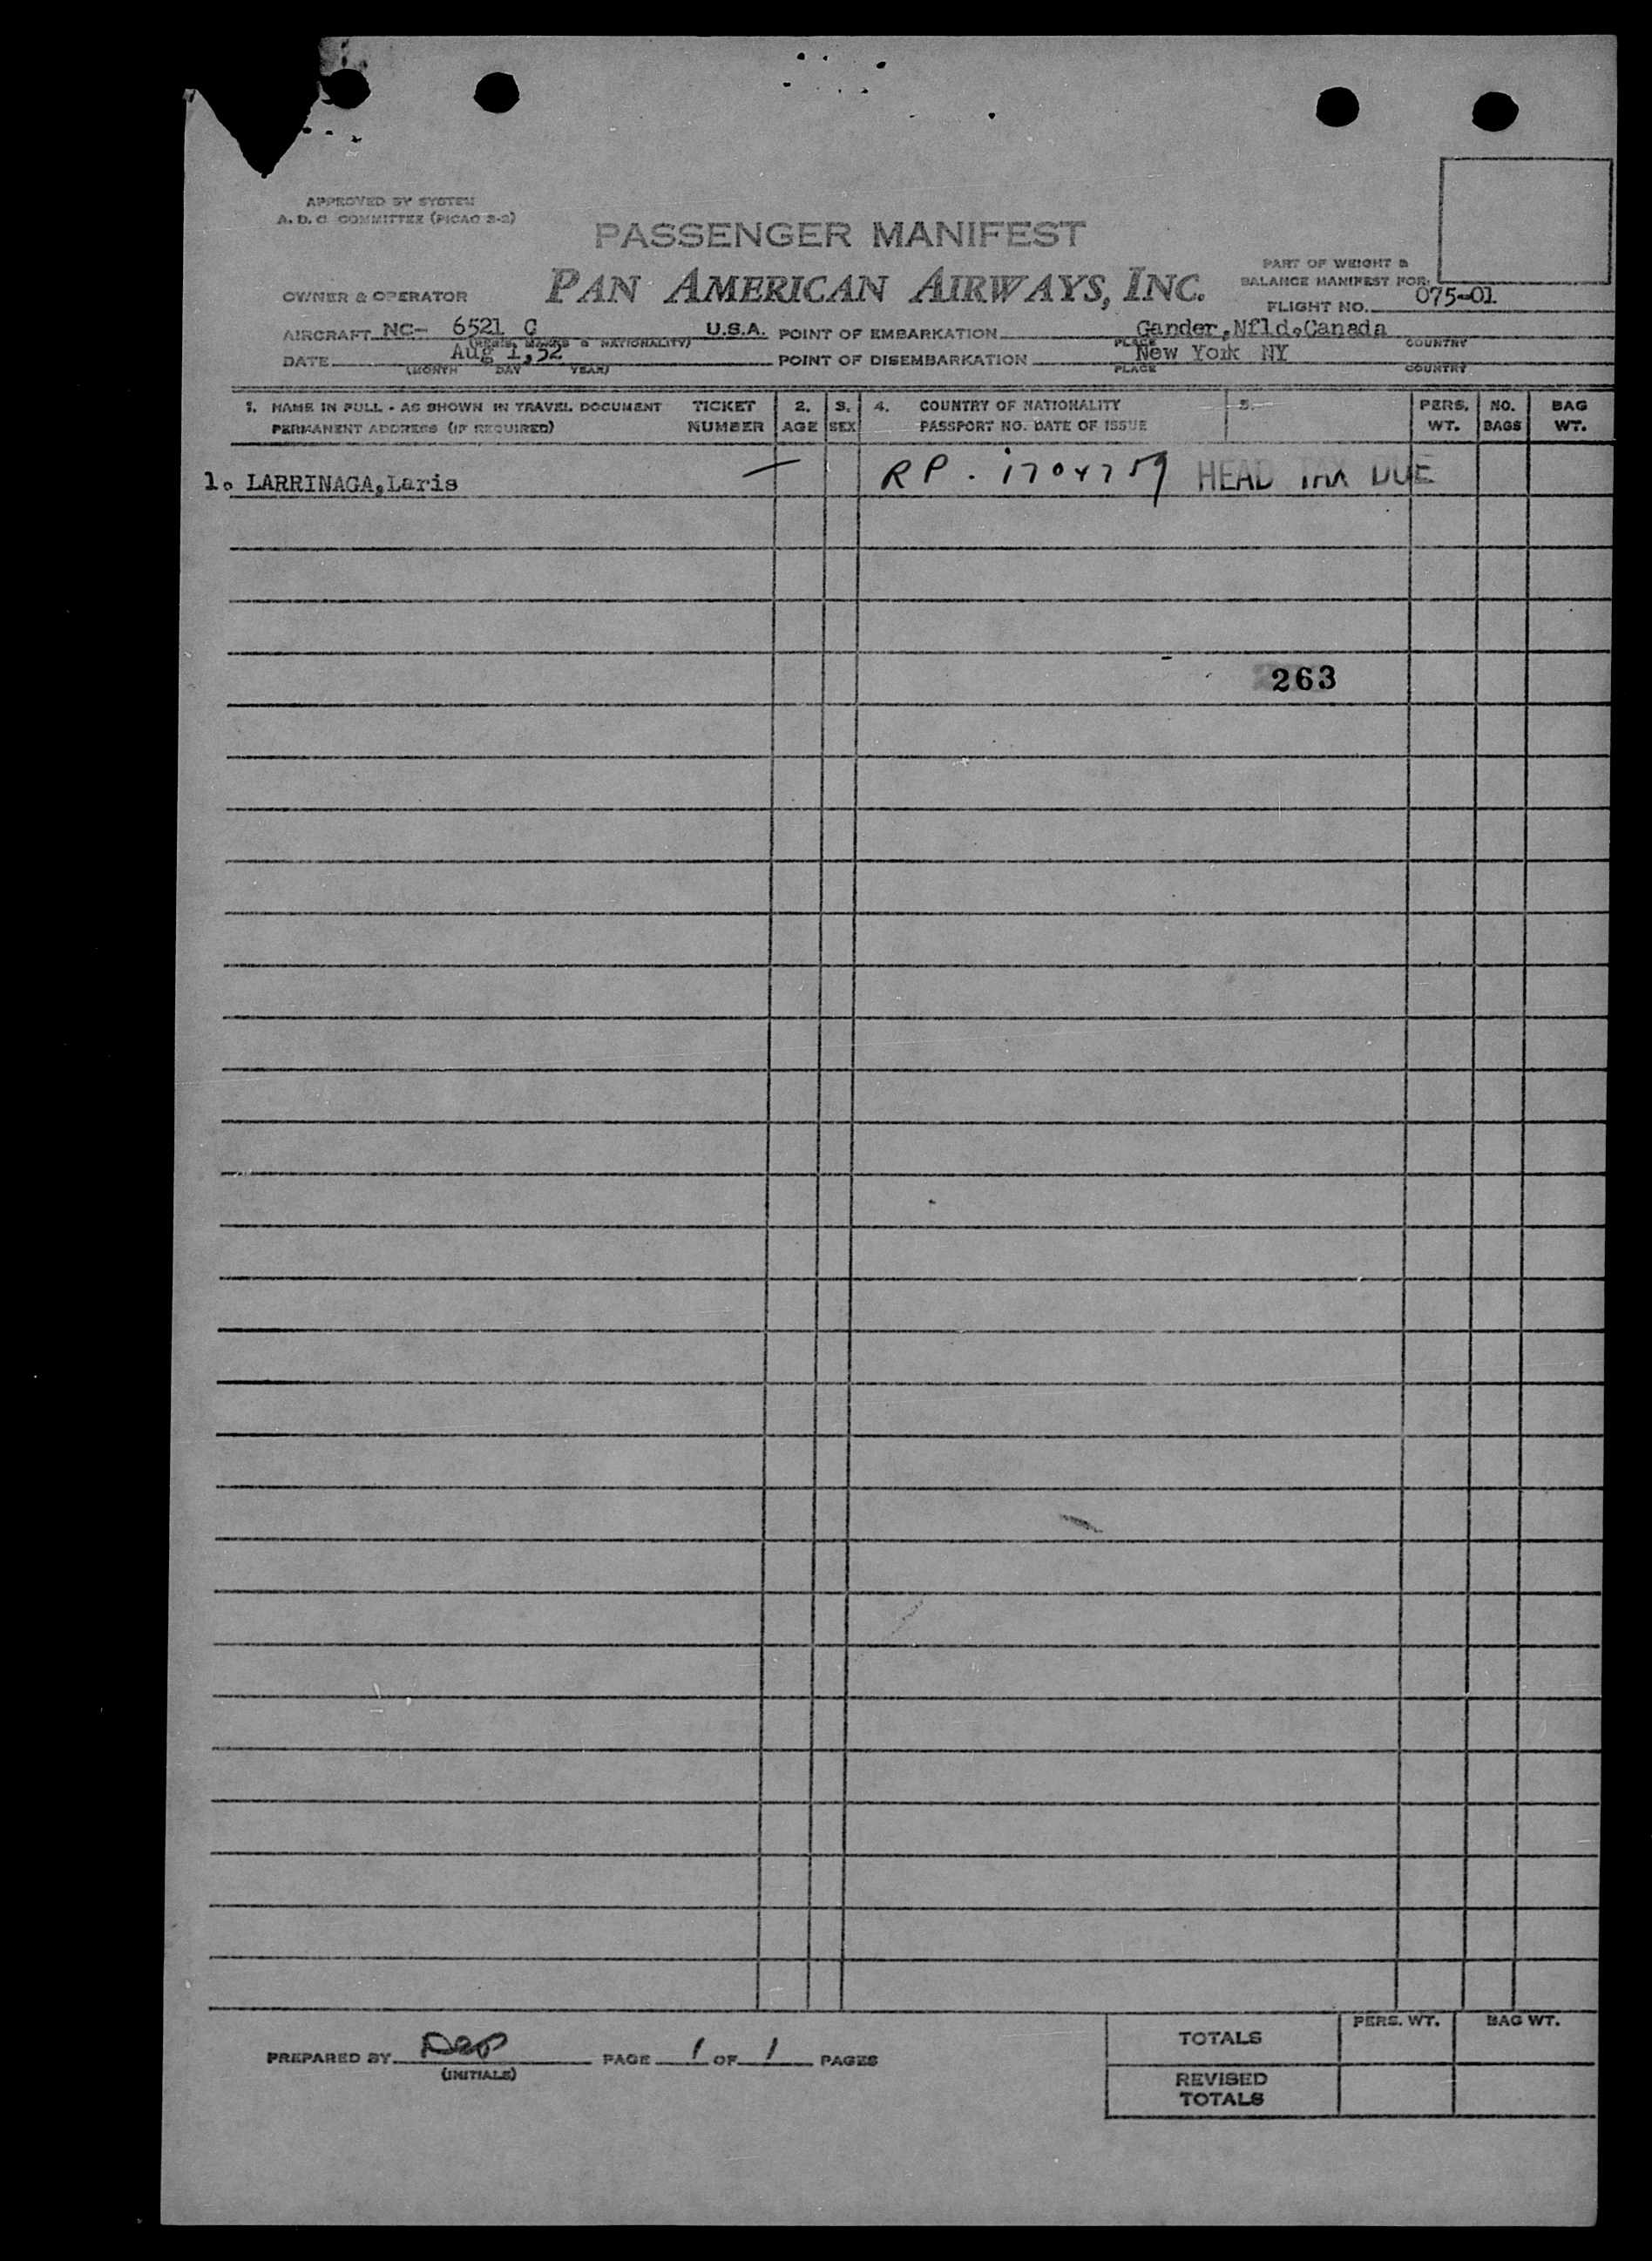 APPROVED BY SYSTEM
A. D. C. COMMITTEE (PICAO 8-2)
PASSENGER MANIFEST
PAN AMERICAN AIRWAYS, INC.
OWNER & OPERATOR
PART OF WEIGHT &
BALANCE MANIFEST FOR:
FLIGHT NO. 075-01
AIRCRAFT NC- 6521 C U.S.A. POINT OF EMBARKATION Gander,Nfld.Canada
(REGIS. MARKS & NATIONALITY) PLACE COUNTRY
DATE Aug 1,52 POINT OF DISEMBARKATION New York NY
(MONTH DAY YEAR) PLACE COUNTRY
1. NAME IN FULL - AS SHOWN IN TRAVEL DOCUMENT TICKET 2. 3. 4. COUNTRY OF NATIONALITY 5. PERS. NO. BAG
PERMANENT ADDRESS (IF REQUIRED) NUMBER AGE SEX PASSPORT NO. DATE OF ISSUE WT. BAGS WT.
1. LARRINAGA,Laris — RP. 1704759 HEAD TAX DUE
263
PERS. WT. BAG WT.
TOTALS
PREPARED BY PAGE 1 OF 1 PAGES
(INITIALS)
REVISED
TOTALS